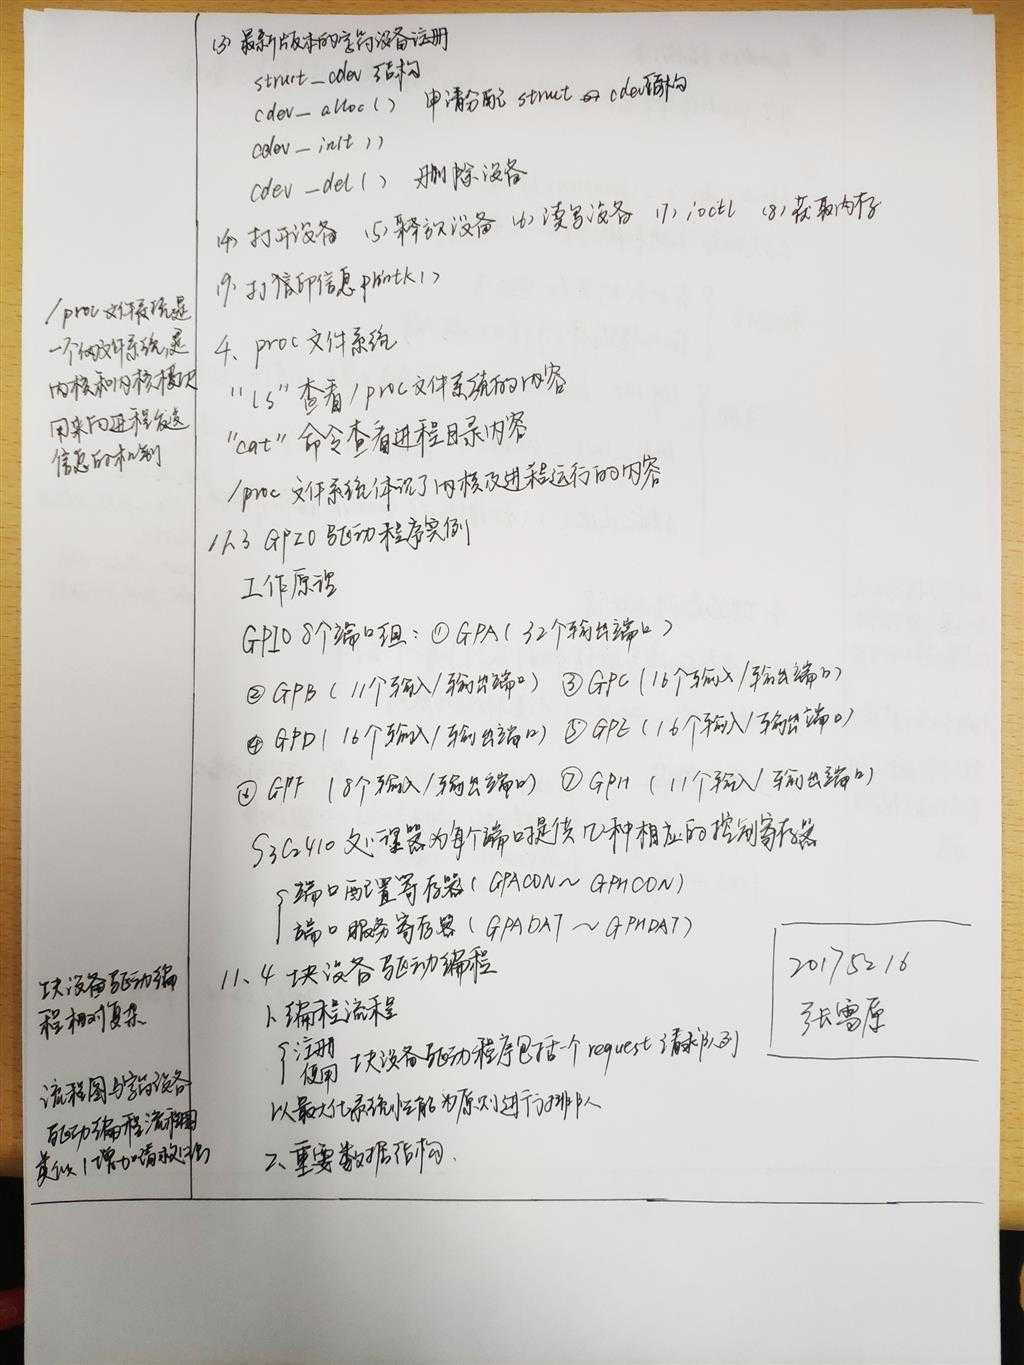 (3) 最新版本的字符设备注册
struct_cdev 结构
cdev_alloc() 申请分配 struct cdev结构
cdev_init()
cdev_del() 删除设备
(4) 打开设备 (5) 释放设备 (6) 读写设备 (7) ioctl (8) 获取内存
(9) 打印信息printk()
4、proc文件系统
"ls"查看/proc文件系统的内容
"cat"命令查看进程目录内容
/proc 文件系统体现了内核及进程运行的内容
11.3 GPIO 驱动程序实例
工作原理
GPIO 8个端口组：① GPA(32个输出端口)
② GPB(11个输入/输出端口) ③ GPC(16个输入/输出端口)
④ GPD(16个输入/输出端口) ⑤ GPE(16个输入/输出端口)
⑥ GPF(8个输入/输出端口) ⑦ GPH(11个输入/输出端口)
S3C2410处理器为每个端口提供几种相应的控制寄存器
端口配置寄存器(GPACON～GPHCON)
端口服务寄存器(GPADAT～GPHDAT)
11、4 块设备驱动编程
1、编程流程
注册
使用 块设备驱动程序包括一个request请求队列
以最大化系统性能为原则进行排队
2、重要数据结构.
/proc文件系统是
一个伪文件系统,是
内核和内核模块
用来向进程发送
信息的机制
块设备驱动编
程相对复杂
流程图与字符设备
驱动编程流程图
类似,增加请求
20175216
张雪原